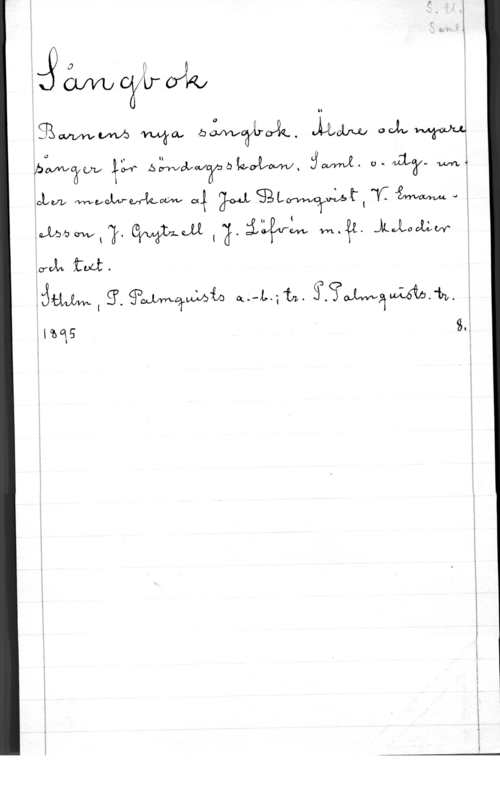 S. U.
Saml.
Sångbok
Barnens nya sångbok. Äldre och nyare
sånger för söndagsskolan. Saml. o. utg. un-
der medverkan af Joel Blomqvist, V. Emanu-
elsson, J. Grytzell, J. Löfvén m. fl. Melodier
och text.
Sthlm, P. Palmquists a.-b.; tr. P. Palmquists. tr.
1895 8.